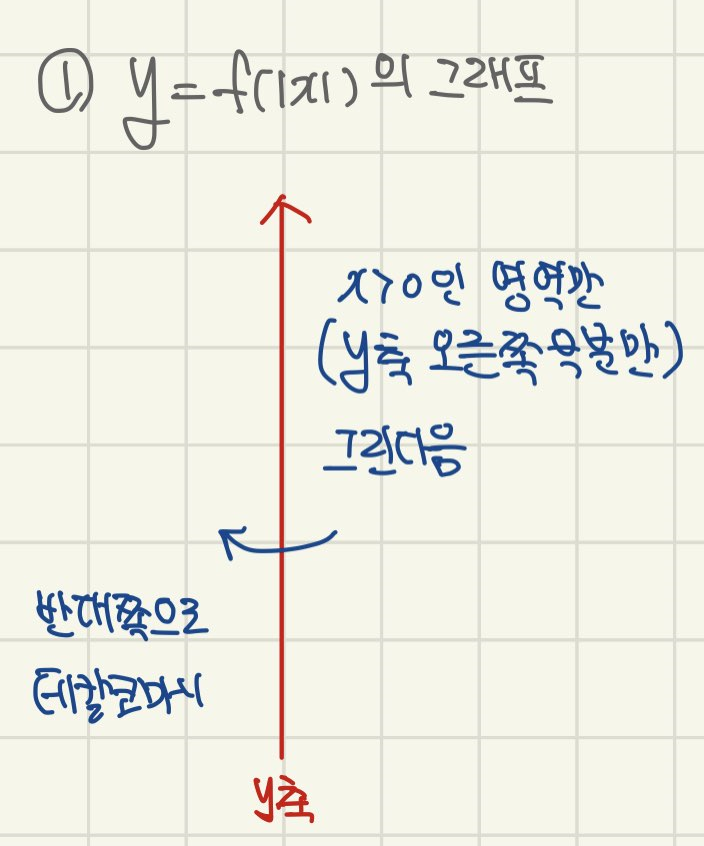 ① y=f(|x|)의 그래프
x>0인 영역만
(y축 오른쪽 윗부분만)
그린다음
반대쪽으로
데칼코마니
y축